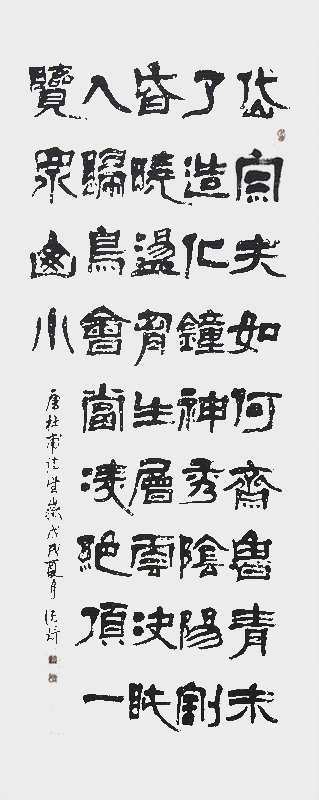 岱宗夫如何齊魯青未
了造化鐘神秀陰陽割
昏曉盪胷生層雲決眦
入歸鳥會當凌絕頂一
覽眾山小
唐杜甫詩望嶽戊戌夏月